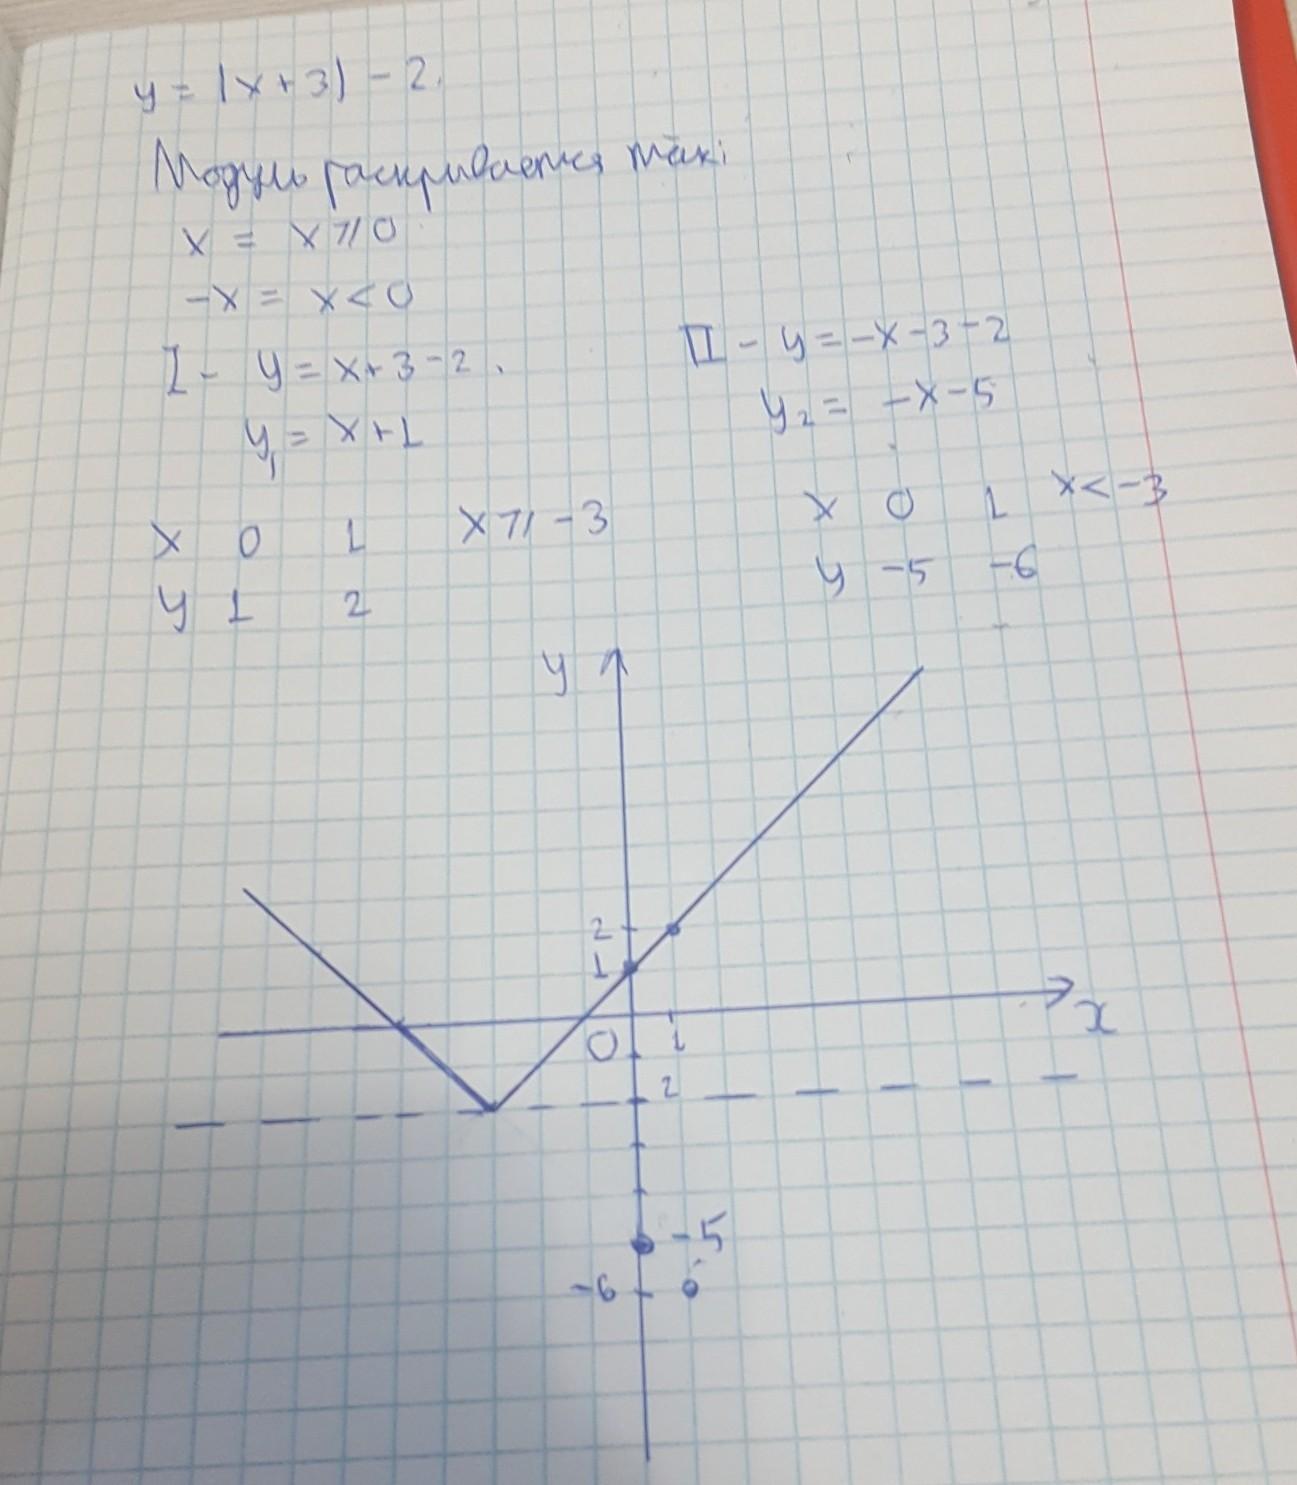 y = |x+3| - 2.
Модуль раскрывается так:
x = x ⩾ 0
-x = x < 0
I - y = x+3-2.
y₁ = x+1
II - y = -x-3-2
y₂ = -x-5
x 0 1 x ⩾ -3
y 1 2
x 0 1 x < -3
y -5 -6
y
2
1
0 1
x
2
-5
-6